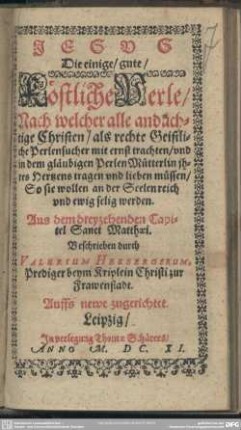 7
JESVS
Die einige/gute/
Köstliche Perle/
Nach welcher alle andäch-
tige Christen/als rechte Geistli-
che Perlensucher mit ernst trachten/und
in dem gläubigen Perlen Mütterlin jh-
res Hertzens tragen und lieben müssen/
So sie wollen an der Seelen reich
und ewig selig werden.
Aus dem dreyzehenden Capi-
tel Sanct Matthæi.
Beschrieben durch
VALERIUM HERBERGERUM,
Prediger beym Kriplein Christi zur
Frawenstadt.
Auffs newe zugerichtet.
Leipzig/
In verlegung Thomæ Schürers/
ANNO M. DC. XI.